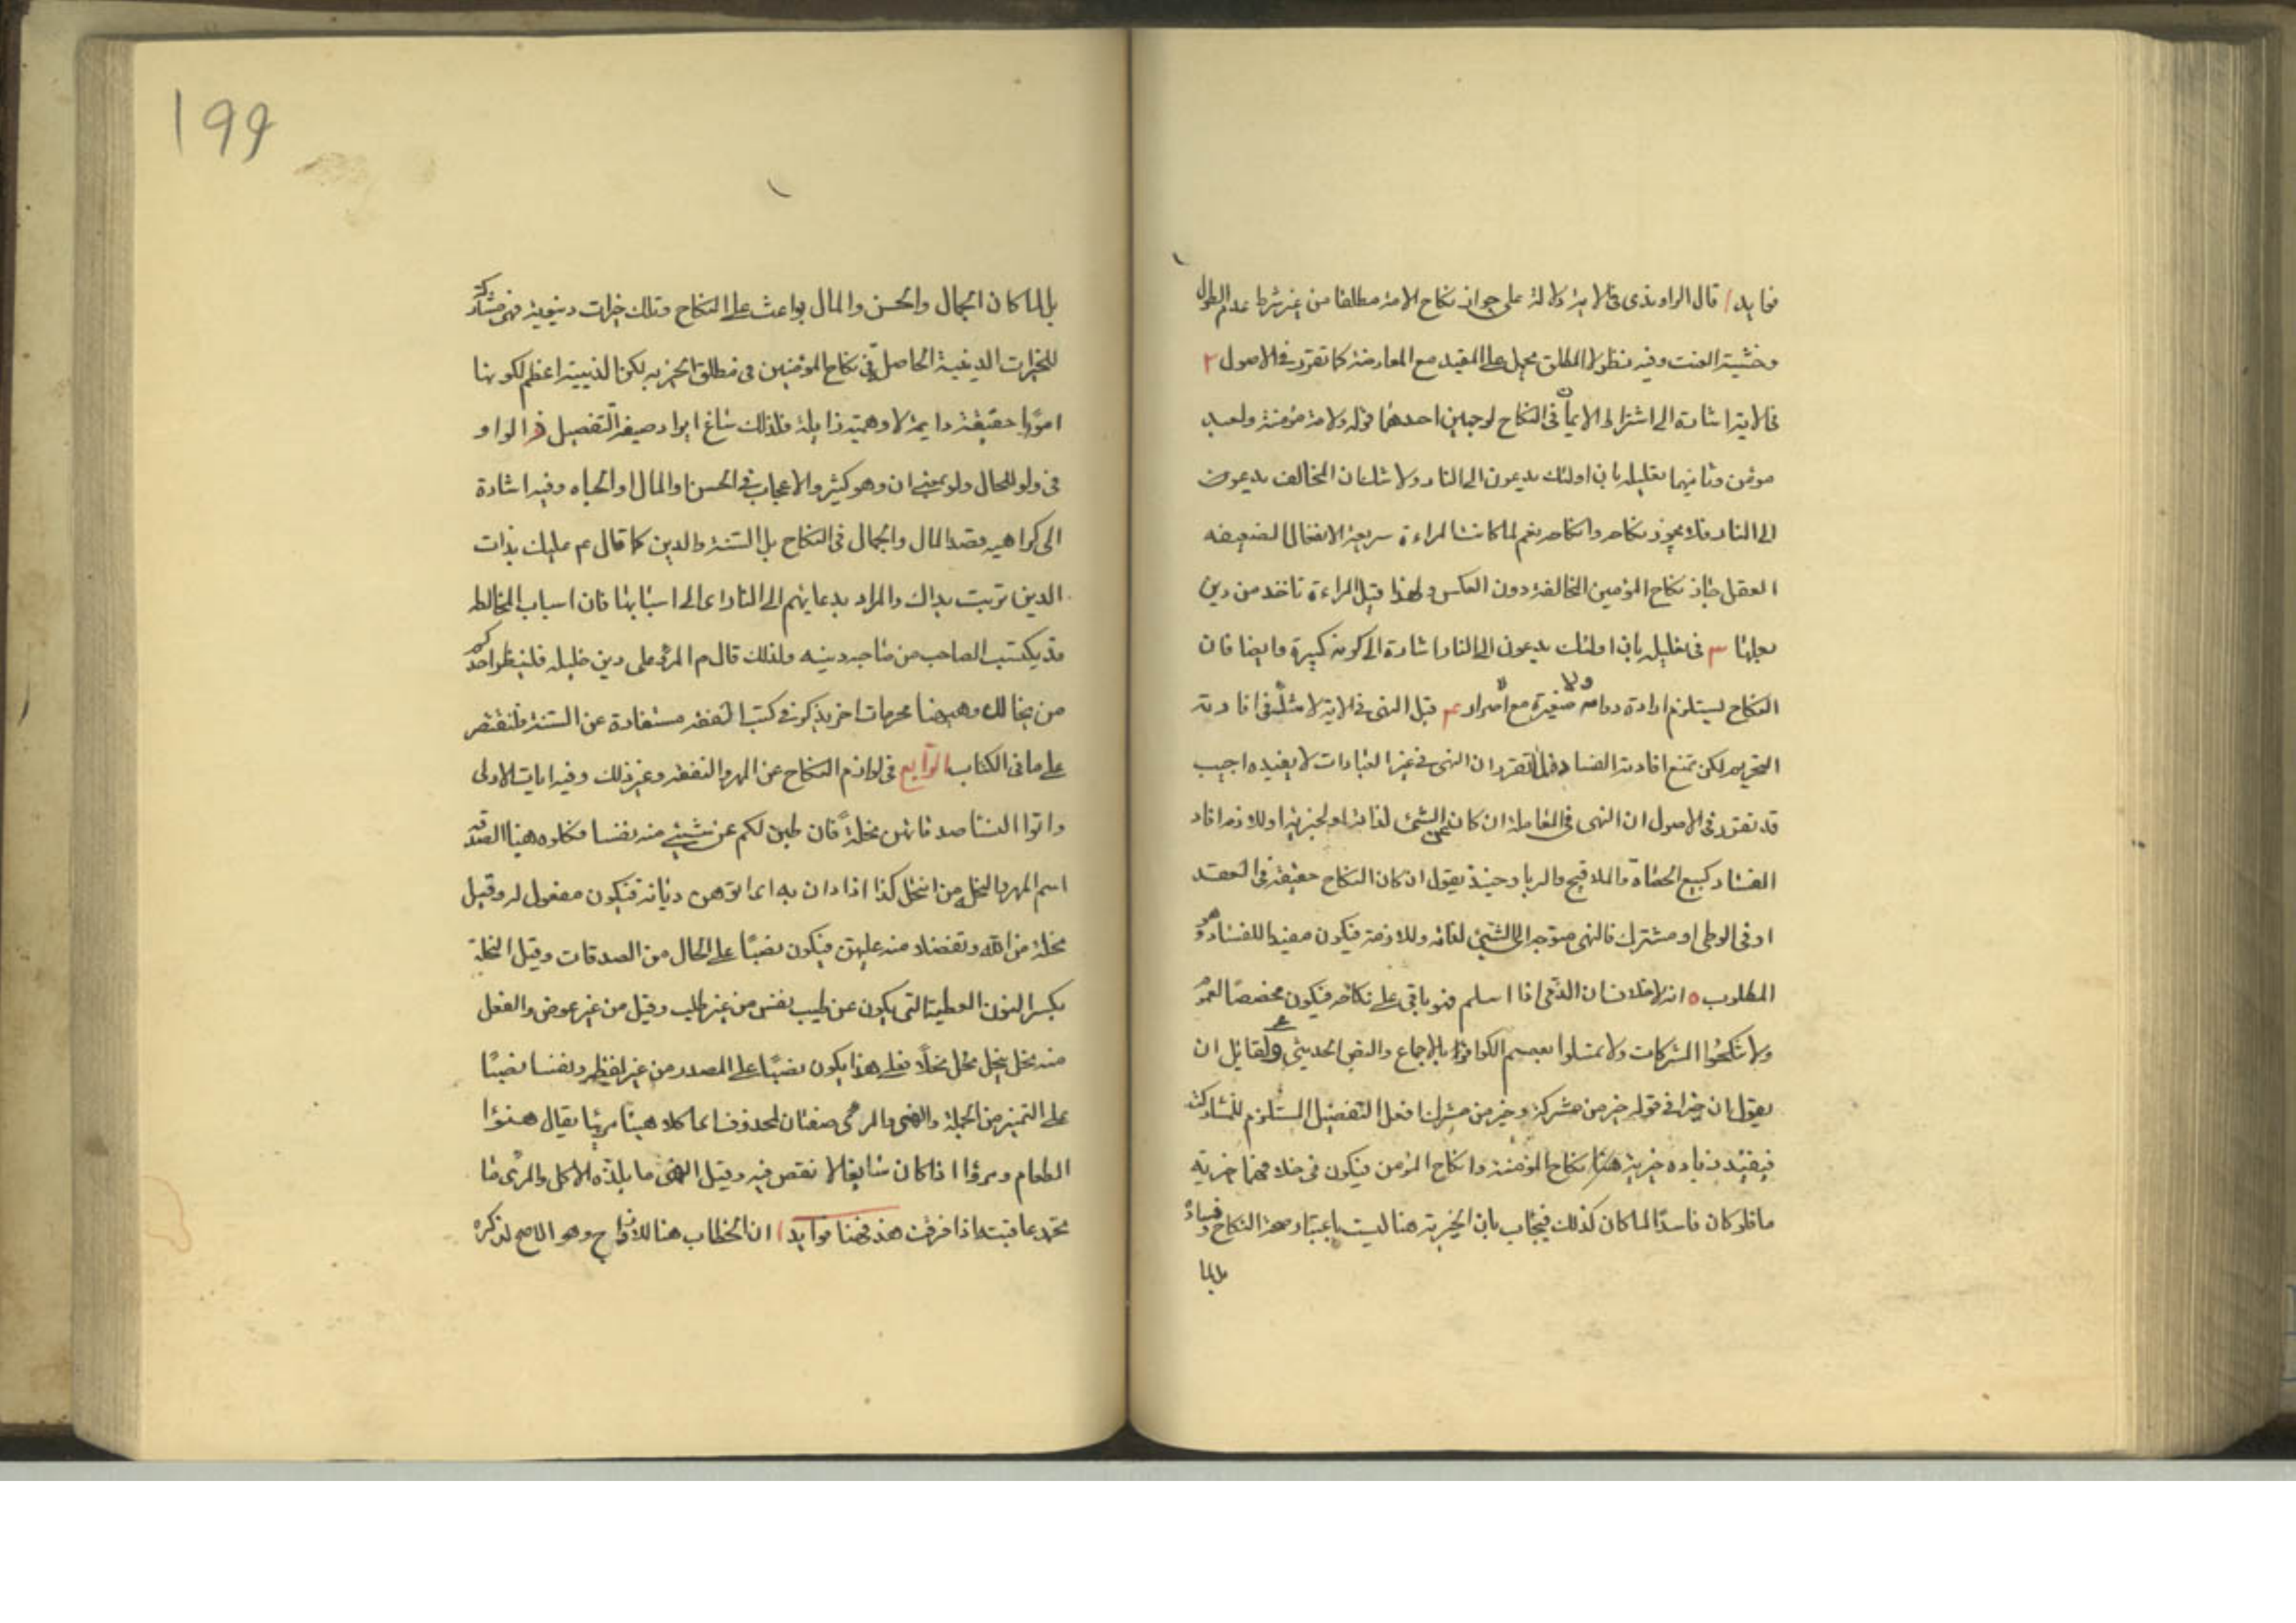 فوايد ا قال الراوندي في الاية دلالة على جواز نكاح الامة مطلقا من غير شرط عدم الطول
وخشية العنت وفيه نظر لان المطلق يحمل على المقيد مع المعارضة كما تقرر في الاصول ٢
في الاية اشارة الى اشتراط الايمان في النكاح لوجهين احدهما قوله ولامة مؤمنة ولعبد
مومن وثانيهما تعليله بان اولئك يدعون الى النار ولا شك ان المخالف يدعون
الى النار فلا يجوز نكاحه وانكاحه نعم لما كانت المراءة سريعة الانفعال لضعيفه
العقل جاز نكاح المؤمن المخالفة دون العكس ولهذا قيل المراءة تاخذ من دين
بعلها ٣ في تعليله بان اولئك يدعون الى النار اشارة الى كونه كبيرة وايضا فان
النكاح يستلزم ارادة دوامه ولا صغيرة مع الاصرار ٤ قيل النهي في الاية لا شك في افادته
التحريم لكن نمنع افادته الفساد لما تقرر ان النهي في غير العبادات لا يفيده اجيب
قد تقرر في الاصول ان النهي في المعاملة ان كان عن الشئ لذاته او لجزئه او للازمه افاد
الفساد كبيع الحصاة والملاقيح والربا وحينئذ يقول ان كان النكاح حقيقة في العقد
او في الوطي او مشترك فالنهي متوجه الى الشئ لذاته وللازمه فيكون مفيدا للفساد وهو
المطلوب ٥ انه لا خلاف ان الذمي اذا اسلم فهو باقي على نكاحه فيكون مخصصا لعموم
ولا تنكحوا المشركات ولا تمسكوا بعصم الكوافر بالاجماع والنص الحديثي ولقائل ان
يقول ان خيرا في قوله خير من مشركة وخير من مشرك افعل التفضيل المستلزم للمشاركة
فيفيد زيادة خيرية هنا نكاح المؤمنة وانكاح المؤمن فيكون في خلافهما خيرية
ما فلو كان فاسدا لما كان كذلك فيجاب بان الخيرية هنا ليست باعتبار صحة النكاح وفساده
بل لما
١٩٩
بل لما كان الجمال والحسن والمال بواعث على النكاح وتلك خيرات دنيوية فهي مشاركة
للخيرات الدينية الحاصل في نكاح المؤمنين في مطلق الخيريه لكن الدينية اعظم لكونها
امورا حقيقة دايمة لا وهمية زايلة فلذلك شاغ ايراد صيغة التفضيل الواو
في ولو للحال ولو بمعني ان وهو كثير والاعجاب في الحسن او المال او الجاه وفيه اشارة
الى كراهيه قصد المال والجمال في النكاح بل السنة والدين كما قال عم عليك بذات
الدين تربت يداك والمراد بدعايهم الى النار اي الى اسبابها فان اسباب المخالطه
قد يكتسب الصاحب من صاحبه دينه ولذلك قال م المرء على دين خليله فلينظر احدكم
من يخالل وهيهنا محرمات اخر يذكر في كتب الفقه مستفادة عن السنة فلنقتصر
على ما في الكتاب الرابع في لوازم النكاح عن المهر والنفقه وغير ذلك وفيه ايات الاولى
واتوا النسا صدقاتهن نحلة فان طبن لكم عن شيئ منه نفسا فكلوه هنيا الصدقه
اسم المهر والنحله من انتحل كذا اذا دان به اي اتوهن ديانة فيكون مفعول له وقيل
نحلة من الله وتفضلا منه عليهن فيكون نصبا على الحال من الصدقات وقيل النحلة
بكسر النون العطية التي يكون عن طيب نفس من غير طلب وقيل من غير عوض والفعل
منه نحل ينحل نحل نحلا فعلى هذا يكون نصبا على المصدر من غير لفظه ونفسا نصبا
على التميز من الجملة والهني والمرئ صفتان لمحذوف اي اكلا هنيا مريئا يقال هنؤا
الطعام ومرؤا اذا كان سايغا لا نقص فيه وقيل الهنئ ما يلذه الاكل والمرئ ما
تحمد عاقبته اذا عرفت هذ فهنا فوايد ا ان الخطاب هنا للازواج وهو الاصح لذكره